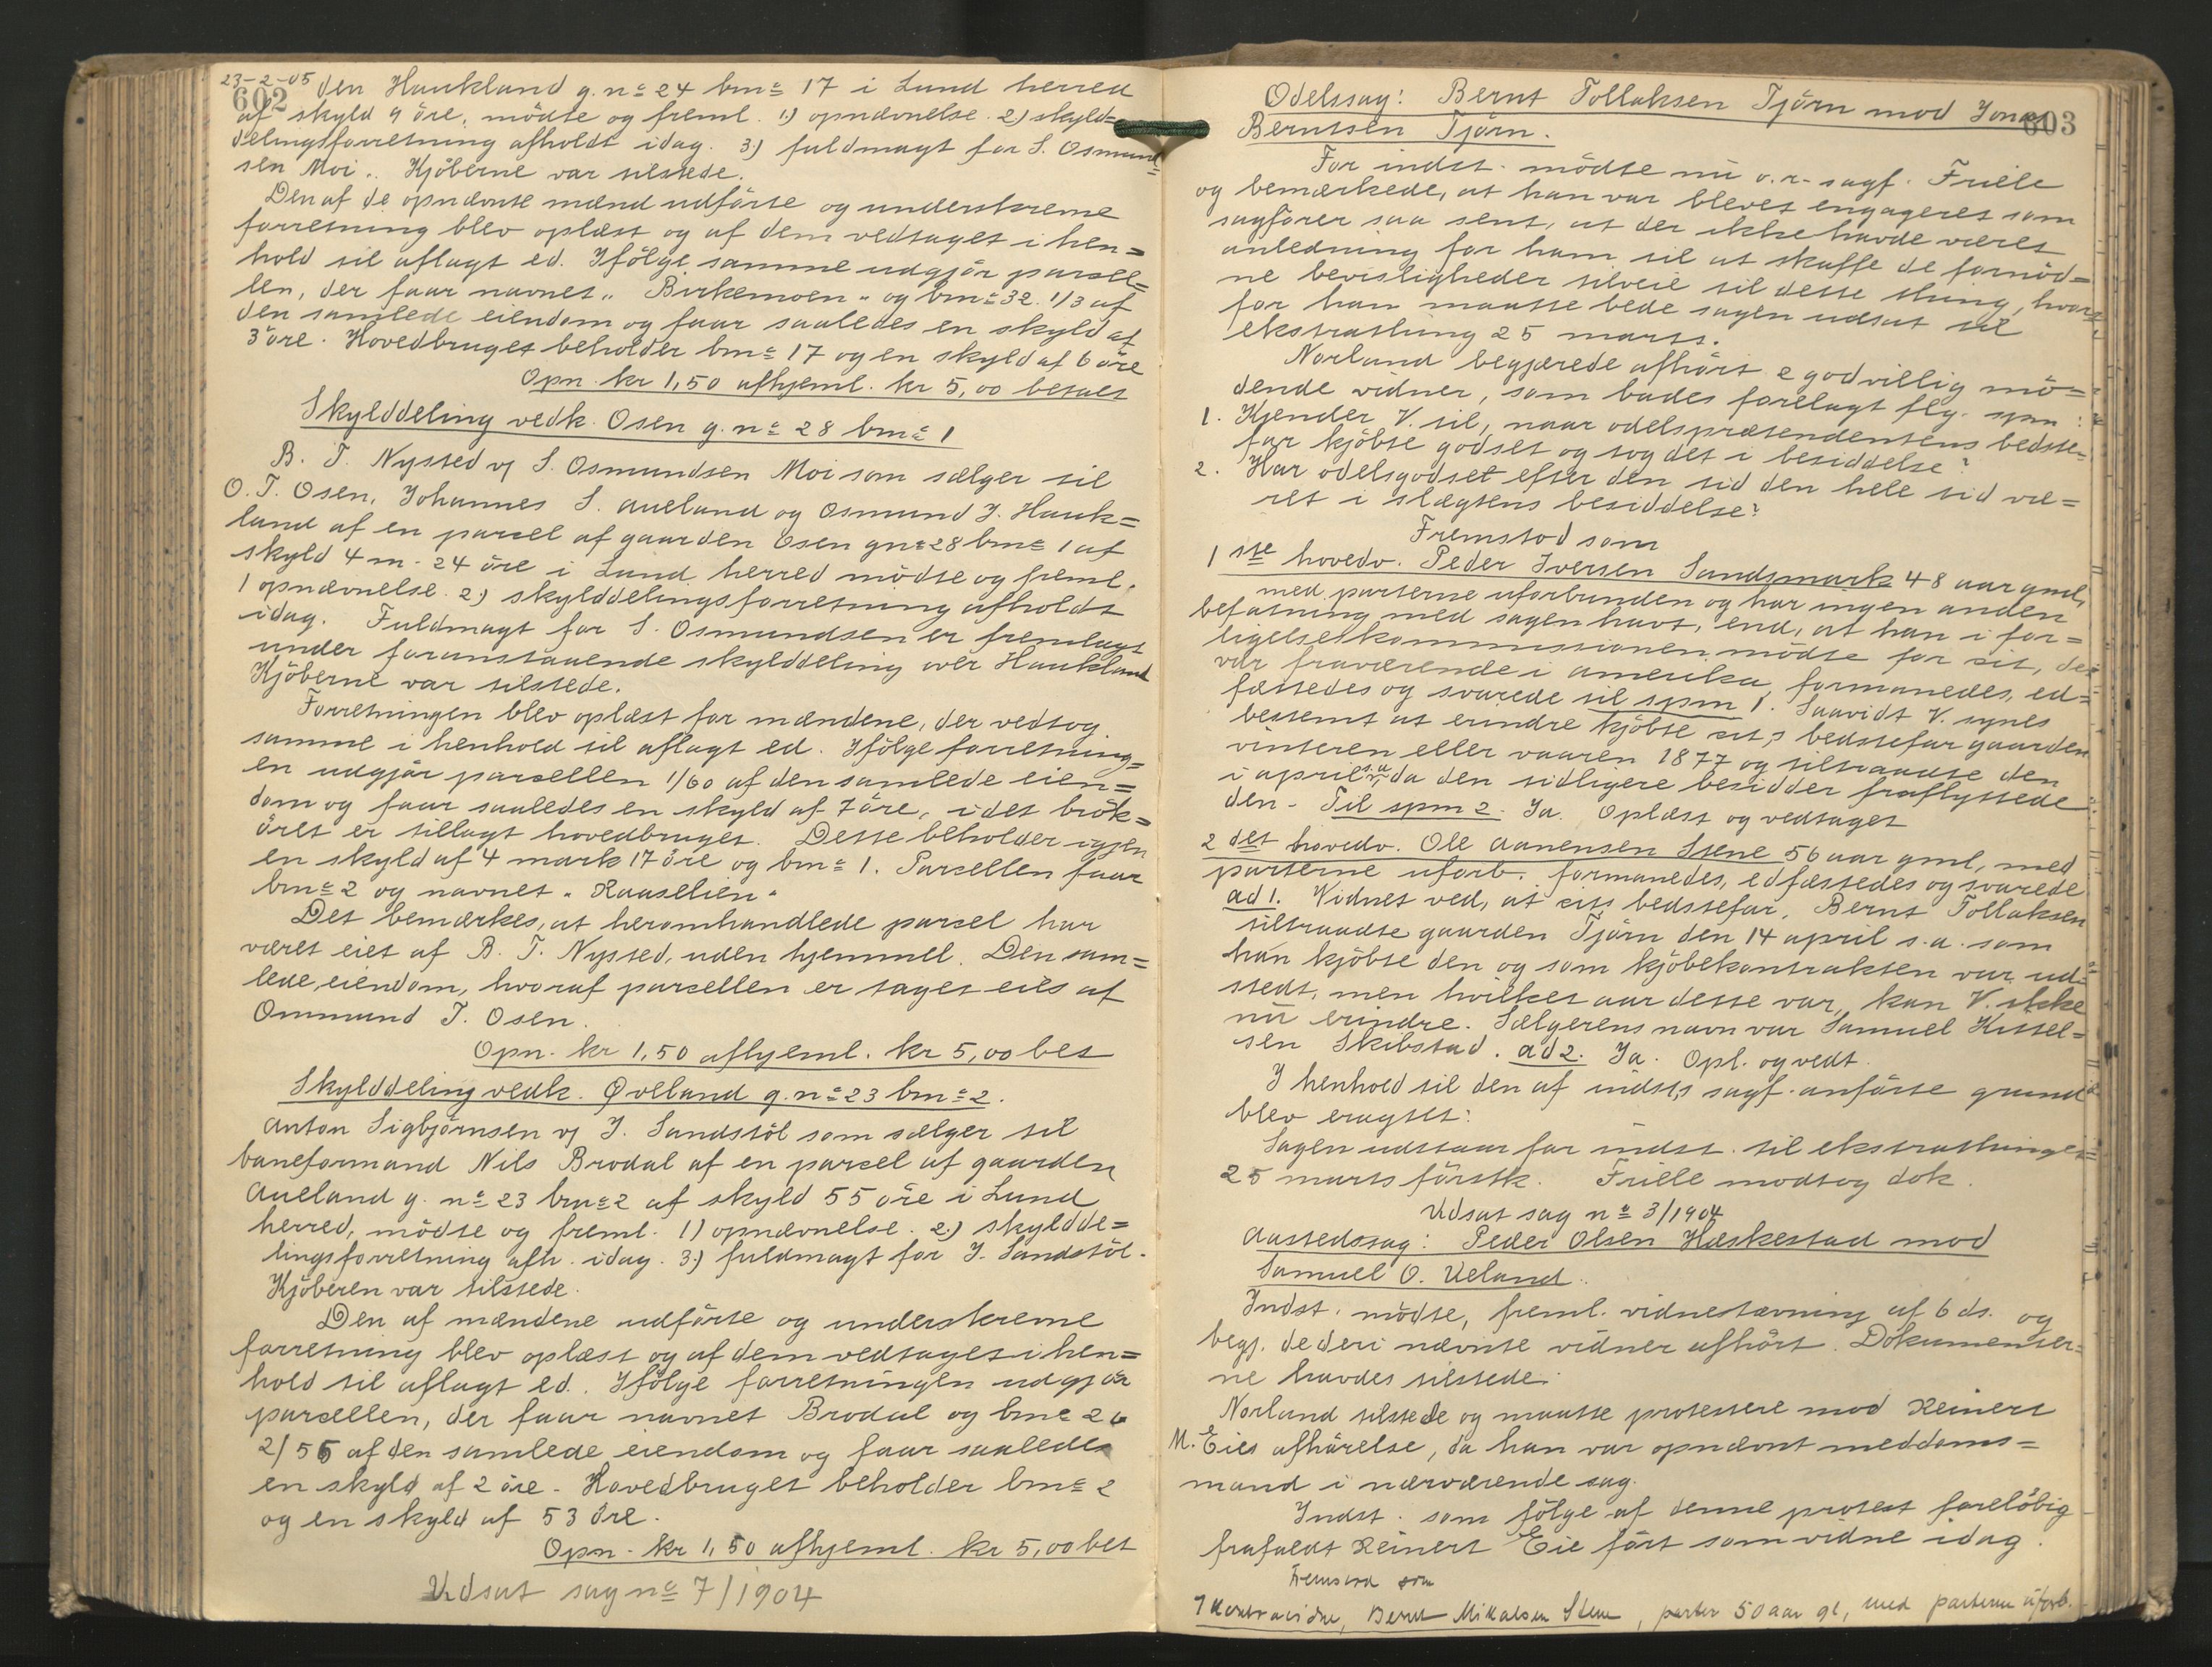 23-2-05
602
den Haukland g.nº 24 bnº 17 i Lund herred
af skyld 9 öre, mödte og freml. 1) opnævnelse. 2) skyld=
delingsforretning afholdt idag. 3) fuldmagt for S. Osmund=
sen Moi. Kjöberne var tilstede.
Den af de opnævnte mænd udförte og underskrevne
forretning blev oplæst og af dem vedtaget i hen=
hold til aflagt ed. Ifölge samme udgjör parsel=
len, der faar navnet „Birkemoen" og bnº 32. 1/3 af
den samlede eiendom og faar saaledes en skyld af
3 öre. Hovedbruget beholder bnº 17 og en skyld af 6 öre
Opn. kr 1,50 afhjeml. kr 5,00 betalt
Skylddeling vedk. Osen g.nº 28 bnº 1
B. T. Nysted v/ S. Osmundsen Moi som sælger til
O. T. Osen, Johannes S. Aueland og Osmund J. Hauk=
land af en parcel af gaarden Osen gnº 28 bnº 1 af
skyld 4 m. 24 öre i Lund herred mödte og freml.
1 opnævnelse. 2) skylddelingsforretning afholdt
idag. Fuldmagt for S. Osmundsen er fremlagt
under foranstaaende skylddeling over Haukland
Kjöberne var tilstede.
Forretningen blev oplæst for mændene, der vedtog
samme i henhold til aflagt ed. Ifölge forretning=
en udgjör parsellen 1/60 af den samlede eien=
dom og faar saaledes en skyld af 7 öre, idet brök=
öret er tillagt hovedbruget. Dette beholder igjen
en skyld af 4 mark 17 öre og bnº 1. Parsellen faar
bnº 2 og navnet „Raaselien"
Det bemærkes, at heromhandlede parcel har
været eiet af B. T. Nysted, uden hjemmel. Den sam=
lede eiendom, hvoraf parsellen er taget eies af
Ommund T. Osen.
Opn. kr 1,50 afhjeml. kr 5,00 bet
Skylddeling vedk. Øveland g.nº 23 bnº 2.
Anton Sigbjörnsen v/ J. Sandstöl som sælger til
baneformand Nils Brodal af en parcel af gaarden
Aueland g. nº 23 bnº 2 af skyld 55 öre i Lund
herred, mödte og freml. 1) opnævnelse. 2.) skyldde=
lingsforretning afh. idag. 3.) fuldmagt for J. Sandstöl.
Kjöberen var tilstede.
Den af mændene udförte og underskrevne
forretning blev oplæst og af dem vedtaget i hen=
hold til aflagt ed. Ifölge forretningen udgjör
parsellen, der faar navnet Brodal og bnº 26
2/55 af den samlede eiendom og faar saaledes
en skyld af 2 öre. Hovedbruget beholder bnº 2
og en skyld af 53 öre.
Opn. kr 1,50 afhjeml. kr 5,00 bet
Udsat sag nº 7/1904
603
Odelssag: Bernt Tollaksen Tjörn mod Jonas
Berntsen Tjörn.
For indst. mödte nu o.r. sagf. Friele
og bemærkede, at han var blevet engageret som
sagförer saa sent, at der ikke havde været
anledning for ham til at skaffe de fornöd=
ne bevisligheder tilveie til dette thing, hvor=
for han maatte bede sagen udsat til
ekstrathing 25 marts.
Norland begjærede afhört 2 godvillig mö=
dende vidner, som bades forelagt flg. spm:
1. Kjender V. til, naar odelsprætendentens bedste=
far kjöbte godset og tog det i besiddelse?
2. Har odelsgodset efter den tid den hele tid væ=
ret i slægtens besiddelse?
Fremstod som
1ste hovedv. Peder Iversen Sandsmark 48 aar gml,
med parterne uforbunden og har ingen anden
befatning med sagen havt, end, at han i for=
ligelseskommissionen mödte for cit, der
var fraværende i Amerika, formanedes, ed=
fæstedes og svarede til spm 1. Saavidt V. synes
bestemt at erindre kjöbte cit,s bedstefar gaarden
vinteren eller vaaren 1877 og tiltraadte den
i april s.a., da den tidligere besidder fraflyttede
den. Til spm 2. Ja. Oplæst og vedtaget
2det hovedv. Ole Aanensen Stene 56 aar gml, med
parterne uforb. formanedes, edfæstedes og svarede
ad 1. Vidnet ved, at cits bedstefar, Bernt Tollaksen
tiltraadte gaarden Tjörn den 14 april s.a. som
han kjöbte den og som kjöbekontrakten var ud=
stedt, men hvilket aar dette var, kan V. ikke
nu erindre. Sælgerens navn var Samuel Kittel=
sen Skibstad. ad 2. Ja. Opl. og vedt.
I henhold til den af indst,s sagf. anförte grund
blev eragtet:
Sagen udstaar for indst. til ekstrathinget
25 marts förstk. Friele modtog dok.
Udsat sag nº 3/1904
Aastedssag: Peder Olsen Hæskestad mod
Samuel O. Ueland.
Indst. mödte, freml. vidnestævning af 6 ds. og
begj. de deri nævnte vidner afhört. Dokumenter=
ne havdes tilstede.
Norland tilstede og maatte protestere mod Reinert
M. Eies afhörelse, da han var opnævnt meddoms=
mand i nærværende sag.
Indst. som fölge af denne protest foreløbig
frafaldt Reinert Eie fört som vidne idag.
Fremstod som
1 Kontravidne, Bernt Mikalsen Stene, 50 aar gl, med parterne uforb.